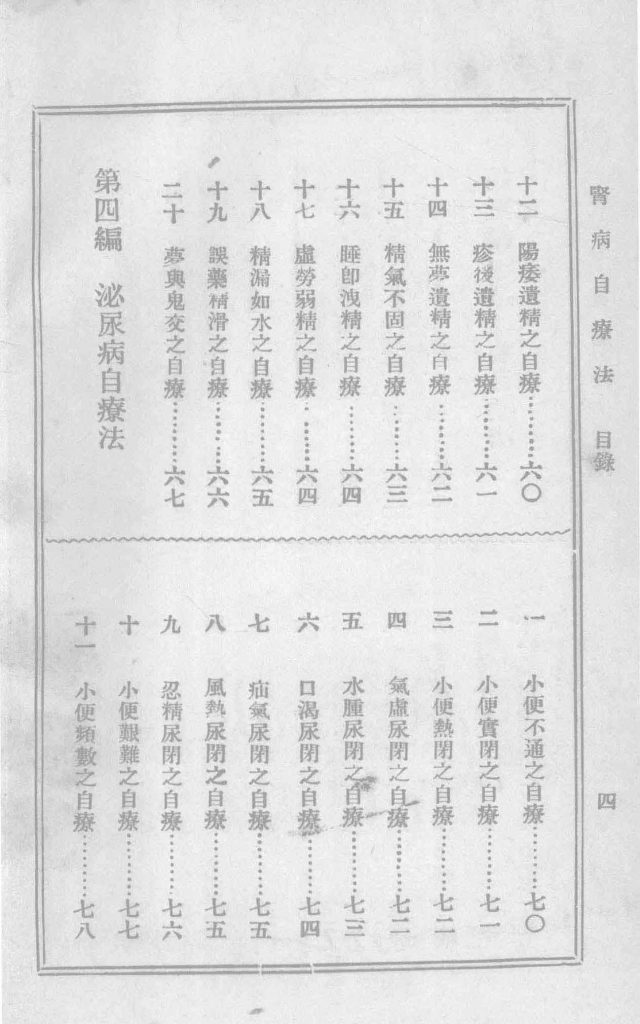 腎病自療法 目錄 四
十二 陽痿遺精之自療………六〇
十三 疹後遺精之自療………六一
十四 無夢遺精之自療………六二
十五 精氣不固之自療………六三
十六 睡卽洩精之自療………六四
十七 虛勞弱精之自療………六四
十八 精漏如水之自療………六五
十九 誤藥精滑之自療………六六
二十 夢與鬼交之自療………六七
第四編 泌尿病自療法
一 小便不通之自療………七〇
二 小便實閉之自療………七一
三 小便熱閉之自療………七二
四 氣虛尿閉之自療………七二
五 水腫尿閉之自療………七三
六 口渴尿閉之自療………七四
七 疝氣尿閉之自療………七五
八 風熱尿閉之自療………七五
九 忍精尿閉之自療………七六
十 小便艱難之自療………七七
十一 小便頻數之自療………七八